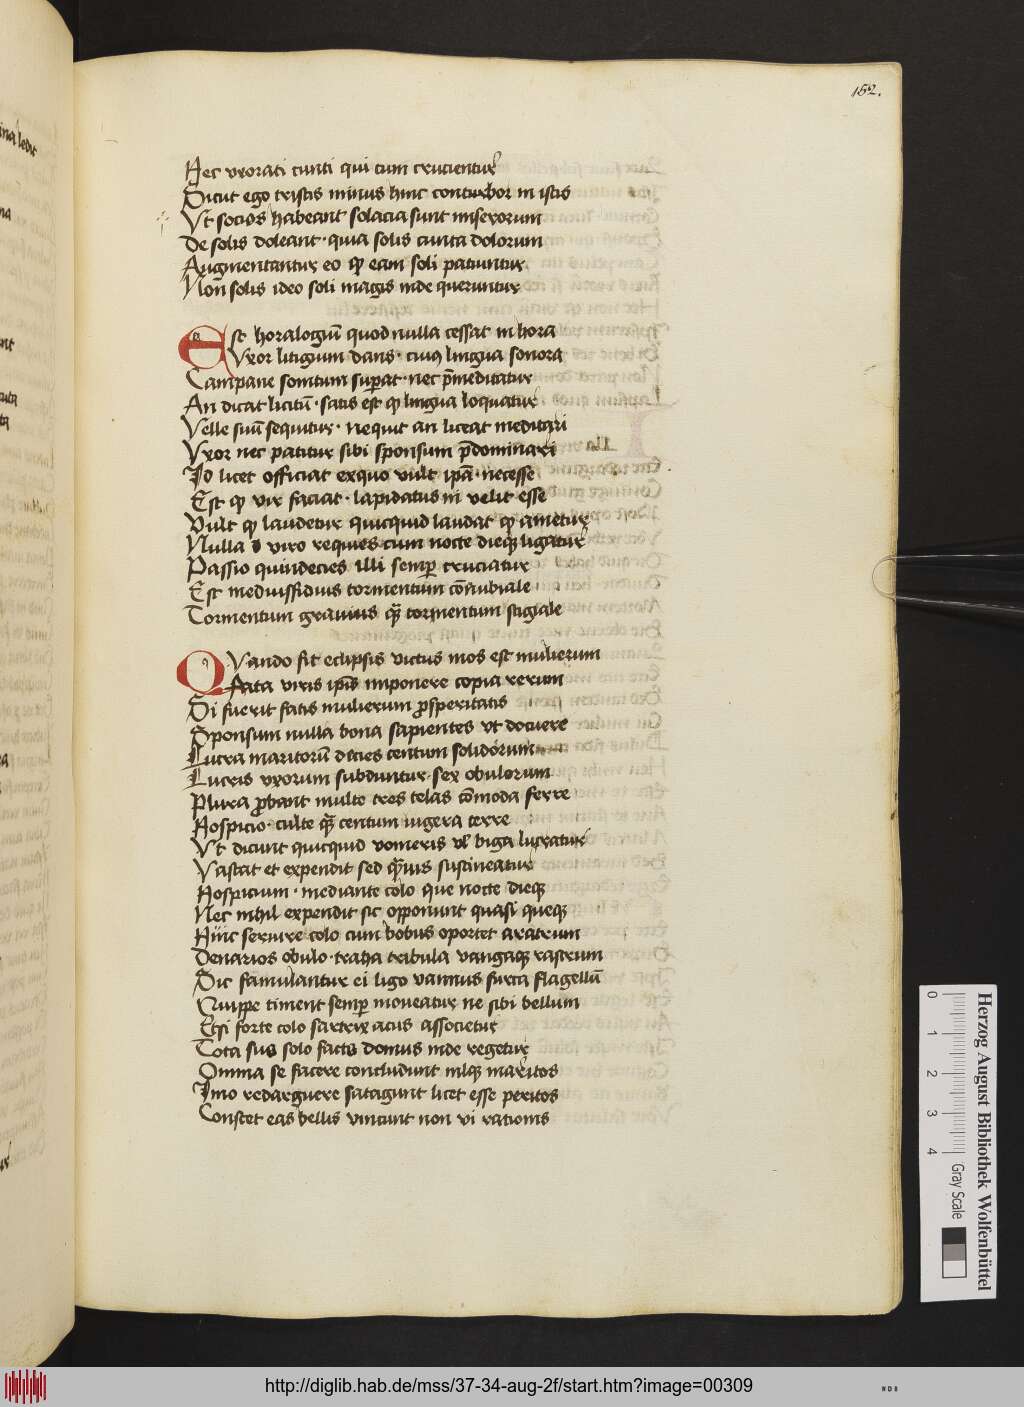 152.
Nec vxorati cuncti qui cum crucientur
Dicut ego tristis minus hinc conturbor in istis
Vt socios habeant solacia sunt miserorum
De solis doleant · quia solis cuncta dolorum
Augmentantur eo qp eam soli patiuntur
Non solis ideo soli magis inde queruntur
Est horalogiū quod nulla cessat in hora
Vxor litigium dans · cuius lingua sonora
Campane sonitum suꝑat · nec p̄meditatur
An dicat licitū · satis est qp lingua loquatur
Velle suū sequitur · nequit an liceat meditari
Vxor nec patitur sibi sponsum p̄dominari
Id licet officiat exquo vult ip̄a · necesse
Est qp vir faciat · lapidatus ni velit esse
Vult qp laudetur quicquid laudat qp ametur
Nulla viro requies cum nocte dieqꝫ ligatur
Passio quindecies illi semꝑ cruciatur
Est mediuissiduus tormentum cōnubiale
Tormentum grauius qᷓ tormentum stigiale
QVando fit eclipsis victus mos est mulierum
Fata viris ip̄is imponere copia rerum
Si fuerit fatis mulierum ꝓsperitatis
Sponsum nulla bona sapientes vt docuere
Lucra maritorū decies centum solidorum
Lucris vxorum subduntur · sex obulorum
Plura ꝓbant multe tres telas cōmoda ferre
Hospicio · culte qᷓ centum iugera terre
Vt dicunt quicquid vomeris vl biga lucratur
Vastat et expendit sed qᷓuis sustineatur
Hospicium · mediante colo que nocte dieqꝫ
Nec nihil expendit sic opponunt quasi queqꝫ
Hinc seruire colo cum bobus oportet aratrum
Denarios obulo · traha tribula vangaqꝫ rastrum
Sic famulantur ei ligo vannus furca flagellū
Quippe timent semꝑ moueatur ne sibi bellum
Etsi forte colo sartrix acus associetur
Tota suo solo factis domus inde regetur
Omnia se facere concludunt inlqꝫ maritos
Imo redarguere satagunt licet esse peritos
Constet eas bellis vincunt non vi rationis
Herzog August Bibliothek Wolfenbüttel
0 1 2 3 4 Gray Scale
http://diglib.hab.de/mss/37-34-aug-2f/start.htm?image=00309